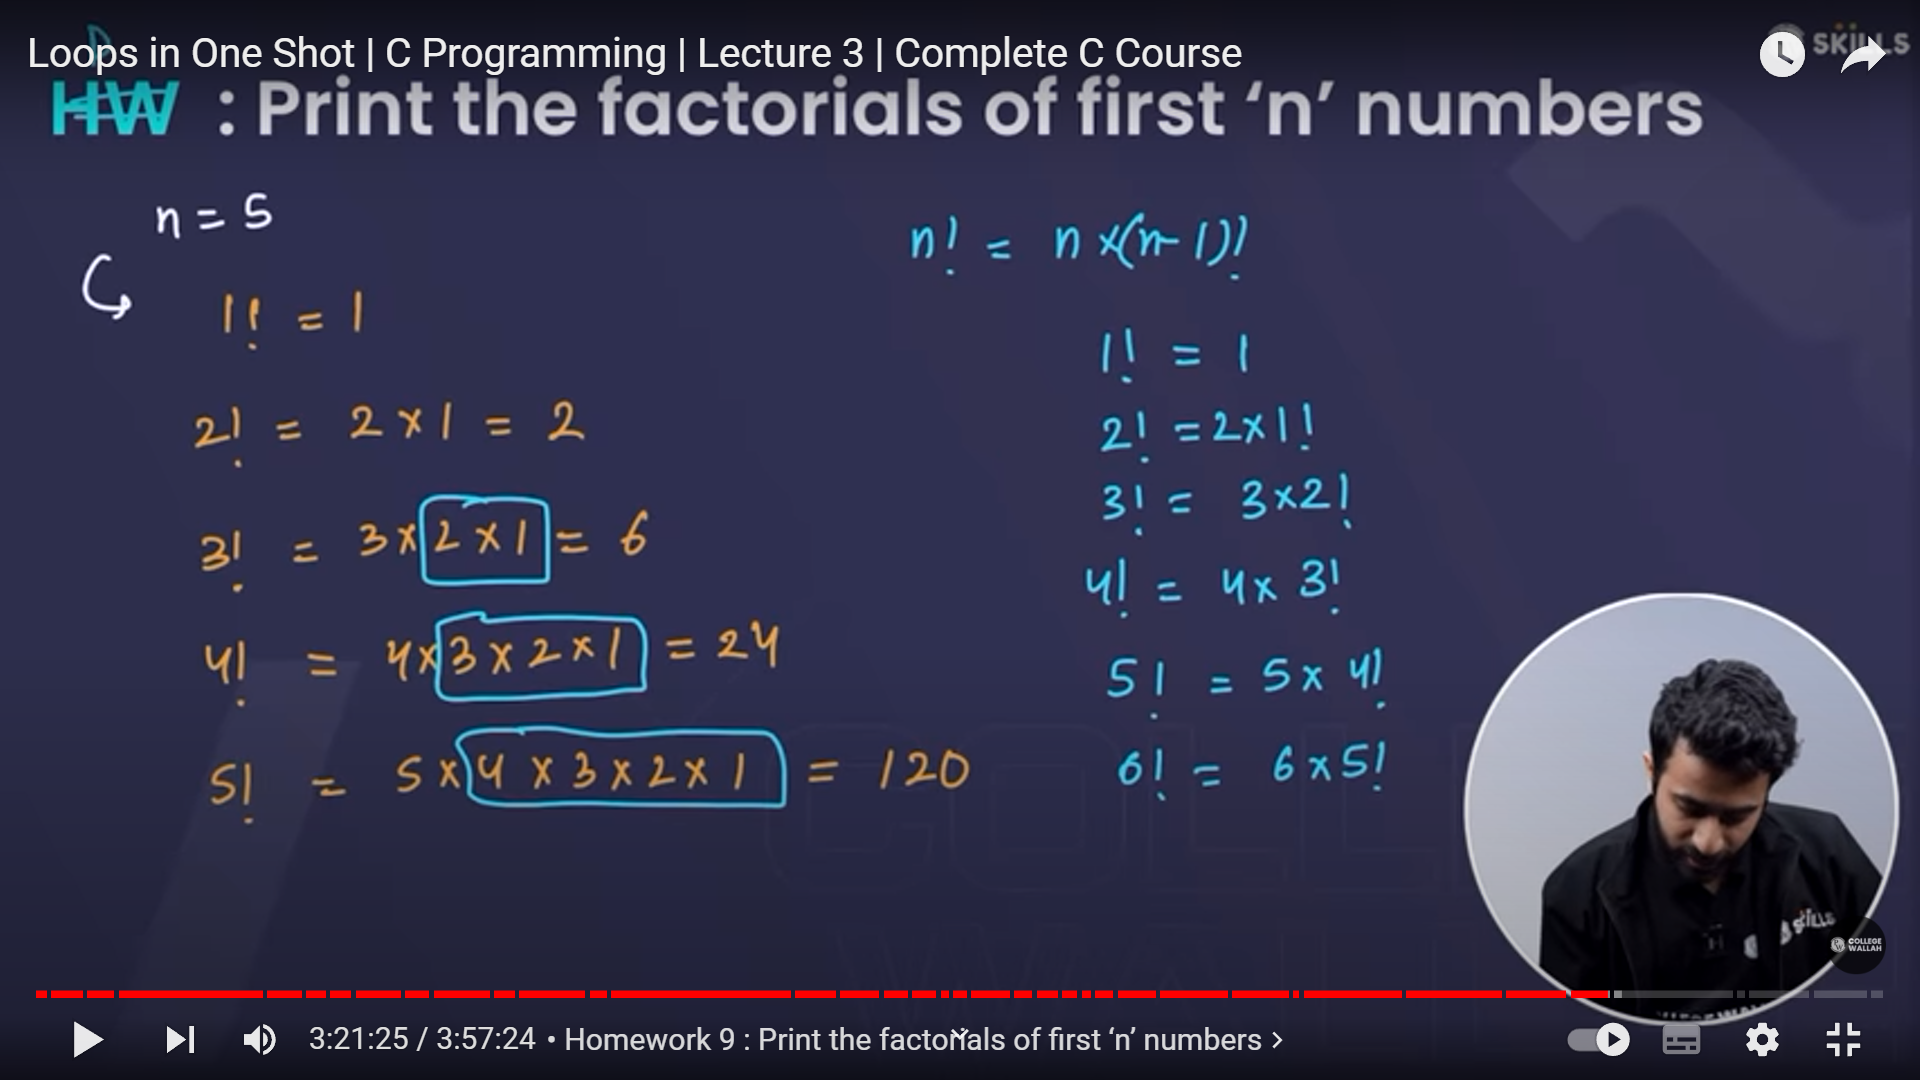 Loops in One Shot | C Programming | Lecture 3 | Complete C Course
SKILLS
HW : Print the factorials of first ‘n’ numbers
n = 5
1! = 1
2! = 2 × 1 = 2
3! = 3 × 2 × 1 = 6
4! = 4 × 3 × 2 × 1 = 24
5! = 5 × 4 × 3 × 2 × 1 = 120
n! = n × (n-1)!
1! = 1
2! = 2 × 1!
3! = 3 × 2!
4! = 4 × 3!
5! = 5 × 4!
6! = 6 × 5!
SKILLS
COLLEGE
WALLAH
3:21:25 / 3:57:24 • Homework 9 : Print the factorials of first ‘n’ numbers >